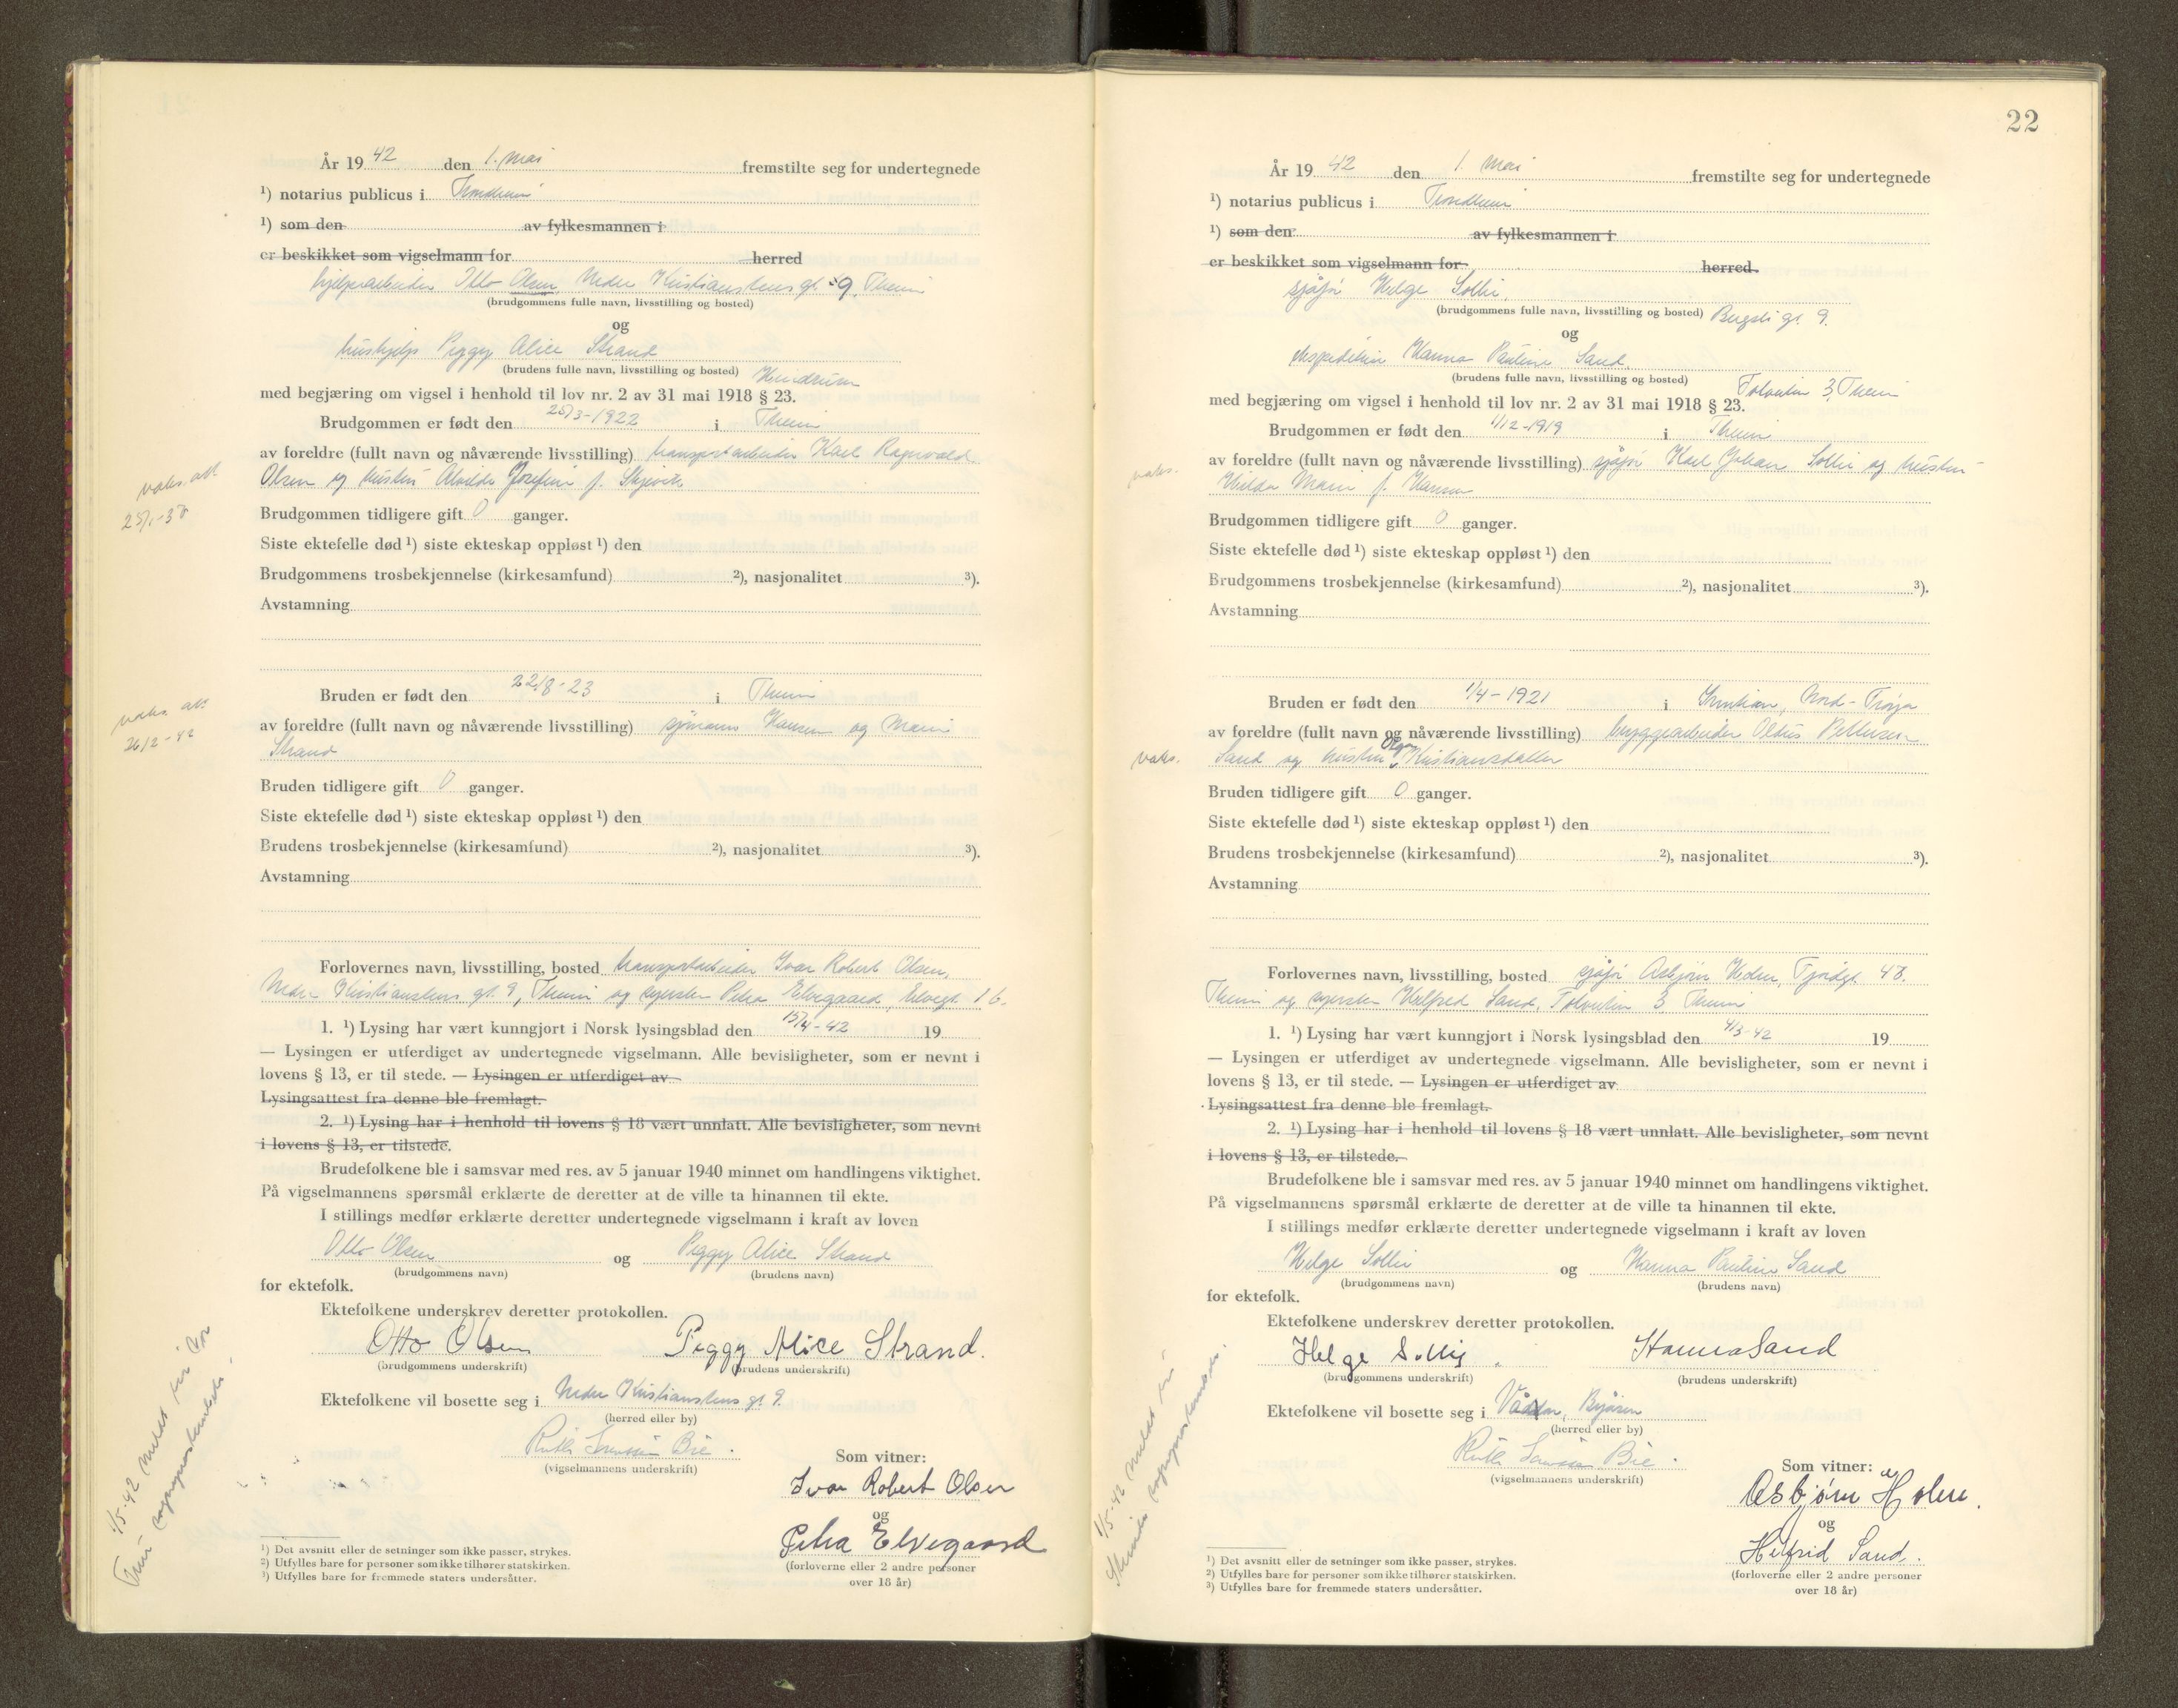 År 19 42 den 1. mai fremstilte seg for undertegnede
¹) notarius publicus i Trondheim
¹) som den av fylkesmannen i
er beskikket som vigselmann for herred
hjelpearbeider Otto Olsen, Nedre Kristianstens gt. 9, Theim
(brudgommens fulle navn, livsstilling og bosted)
og
hushjelp Peggy Alice Strand
(brudens fulle navn, livsstilling og bosted)
med begjæring om vigsel i henhold til lov nr. 2 av 31 mai 1918 § 23.
Brudgommen er født den 25/3-1922 i Theim
av foreldre (fullt navn og nåværende livsstilling) transportarbeider Karl Ragnvald
Olsen og hustru Alvilde Josefine f.
vaks. att
Brudgommen tidligere gift 0 ganger.
Siste ektefelle død ¹) siste ekteskap oppløst ¹) den
Brudgommens trosbekjennelse (kirkesamfund) ²), nasjonalitet ³).
Avstamning
Bruden er født den 22/8-23 i Theim
vaks. att
26/2-42
av foreldre (fullt navn og nåværende livsstilling) sjømann Hansen og Marie
Strand
Bruden tidligere gift 0 ganger.
Siste ektefelle død ¹) siste ekteskap oppløst ¹) den
Brudens trosbekjennelse (kirkesamfund) ²), nasjonalitet ³).
Avstamning
Forlovernes navn, livsstilling, bosted transportarbeider Ivar Robert Olsen,
Nedre Kristianstens gt. 9, Theim og syerske Petra Elvegaard, Elvegt. 16.
1. ¹) Lysing har vært kunngjort i Norsk lysingsblad den 15/4-42 19
— Lysingen er utferdiget av undertegnede vigselmann. Alle bevisligheter, som er nevnt i
lovens § 13, er til stede. — Lysingen er utferdiget av
Lysingsattest fra denne ble fremlagt.
2. ¹) Lysing har i henhold til lovens § 18 vært unnlatt. Alle bevisligheter, som nevnt
i lovens § 13, er tilstede.
Brudefolkene ble i samsvar med res. av 5 januar 1940 minnet om handlingens viktighet.
På vigselmannens spørsmål erklærte de deretter at de ville ta hinannen til ekte.
I stillings medfør erklærte deretter undertegnede vigselmann i kraft av loven
Otto Olsen og Peggy Alice Strand
(brudgommens navn) (brudens navn)
for ektefolk.
Ektefolkene underskrev deretter protokollen.
Otto Olsen Peggy Alice Strand.
(brudgommens underskrift) (brudens underskrift)
Ektefolkene vil bosette seg i Nedre Kristianstens gt 9.
(herred eller by)
Ruth Sørenssen Bie.
(vigselmannens underskrift)
Som vitner:
Ivar Robert Olsen
og
Petra Elvegaard
(forloverne eller 2 andre personer
over 18 år)
1/5-42 meldt til
¹) Det avsnitt eller de setninger som ikke passer, strykes.
²) Utfylles bare for personer som ikke tilhører statskirken.
³) Utfylles bare for fremmede staters undersåtter.
22
År 19 42 den 1. mai fremstilte seg for undertegnede
¹) notarius publicus i Trondheim
¹) som den av fylkesmannen i
er beskikket som vigselmann for herred.
sjåfør Helge Solli,
(brudgommens fulle navn, livsstilling og bosted) gt. 9.
og
ekspeditrise Hanna Pauline Sand,
(brudens fulle navn, livsstilling og bosted)
3, Theim
med begjæring om vigsel i henhold til lov nr. 2 av 31 mai 1918 § 23.
Brudgommen er født den 1/12-1919 i Theim
av foreldre (fullt navn og nåværende livsstilling) sjåfør Karl Johan Solli og hustru
vaks.
Hilda Marie f. Hansen
Brudgommen tidligere gift 0 ganger.
Siste ektefelle død ¹) siste ekteskap oppløst ¹) den
Brudgommens trosbekjennelse (kirkesamfund) ²), nasjonalitet ³).
Avstamning
Bruden er født den 1/4-1921 i
av foreldre (fullt navn og nåværende livsstilling) bryggearbeider
vaks. Sand og hustru Olga
Bruden tidligere gift 0 ganger.
Siste ektefelle død ¹) siste ekteskap oppløst ¹) den
Brudens trosbekjennelse (kirkesamfund) ²), nasjonalitet ³).
Avstamning
Forlovernes navn, livsstilling, bosted sjåfør Asbjørn 48.
Theim og syerske Helfred Sand, 3 Theim
1. ¹) Lysing har vært kunngjort i Norsk lysingsblad den 4/3-42 19
— Lysingen er utferdiget av undertegnede vigselmann. Alle bevisligheter, som er nevnt i
lovens § 13, er til stede. — Lysingen er utferdiget av
Lysingsattest fra denne ble fremlagt.
2. ¹) Lysing har i henhold til lovens § 18 vært unnlatt. Alle bevisligheter, som nevnt
i lovens § 13, er tilstede.
Brudefolkene ble i samsvar med res. av 5 januar 1940 minnet om handlingens viktighet.
På vigselmannens spørsmål erklærte de deretter at de ville ta hinannen til ekte.
I stillings medfør erklærte deretter undertegnede vigselmann i kraft av loven
Helge Solli og Hanna Pauline Sand
(brudgommens navn) (brudens navn)
for ektefolk.
Ektefolkene underskrev deretter protokollen.
Helge Solli Hanna Sand
(brudgommens underskrift) (brudens underskrift)
Ektefolkene vil bosette seg i
(herred eller by)
Ruth Sørenssen Bie.
(vigselmannens underskrift)
Som vitner:
Asbjørn
og
Helfrid Sand.
(forloverne eller 2 andre personer
over 18 år)
1/5-42 meldt til
¹) Det avsnitt eller de setninger som ikke passer, strykes.
²) Utfylles bare for personer som ikke tilhører statskirken.
³) Utfylles bare for fremmede staters undersåtter.